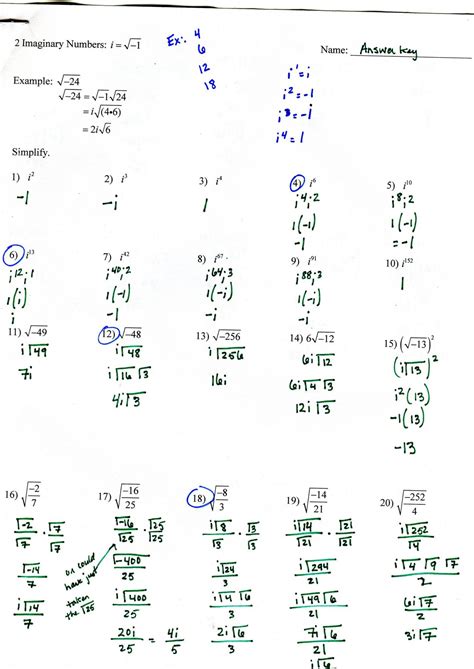 2 Imaginary Numbers: i = √-1
Ex: 4
6
12
18
Name: Answer Key
i¹ = i
i² = -1
i³ = -i
i⁴ = 1
Example: √-24
√-24 = √-1√24
= i√(4•6)
= 2i√6
Simplify.
1) i²
-1
2) i³
-i
3) i⁴
1
4) i⁶
i⁴·i²
1(-1)
-1
5) i¹⁰
i⁸·i²
1(-1)
= -1
6) i¹³
i¹²·i¹
1(i)
i
7) i⁴²
i⁴⁰·i²
1(-1)
-1
8) i⁶⁷
i⁶⁴·i³
1(-i)
-i
9) i⁹¹
i⁸⁸·i³
1(-i)
-i
10) i¹⁵²
1
11) √-49
i√49
7i
12) √-48
i√48
i√16 √3
4i√3
13) √-256
i√256
16i
14) 6√-12
6i√12
6i√4 √3
12i √3
15) (√-13)²
(i√13)²
i²(13)
-1(13)
-13
16) √(-2/7)
√-2/√7 · √7/√7
√-14/7
i√14/7
17) √(-16/25)
√-16/√25 · √25/√25
√-400/25
i√400/25
20i/25 = 4i/5
or could
have just
taken
the √25
18) √(-8/3)
i√8/√3 · √3/√3
i√24/3
i√4 √6/3
2i√6/3
19) √(-14/21)
i√14/√21 · √21/√21
i√294/21
i√49 √6/21
7i√6/21
i√6
20) √(-252/4)
i√252/√4
i√4 √9 √7/2
6i√7/2
3i√7